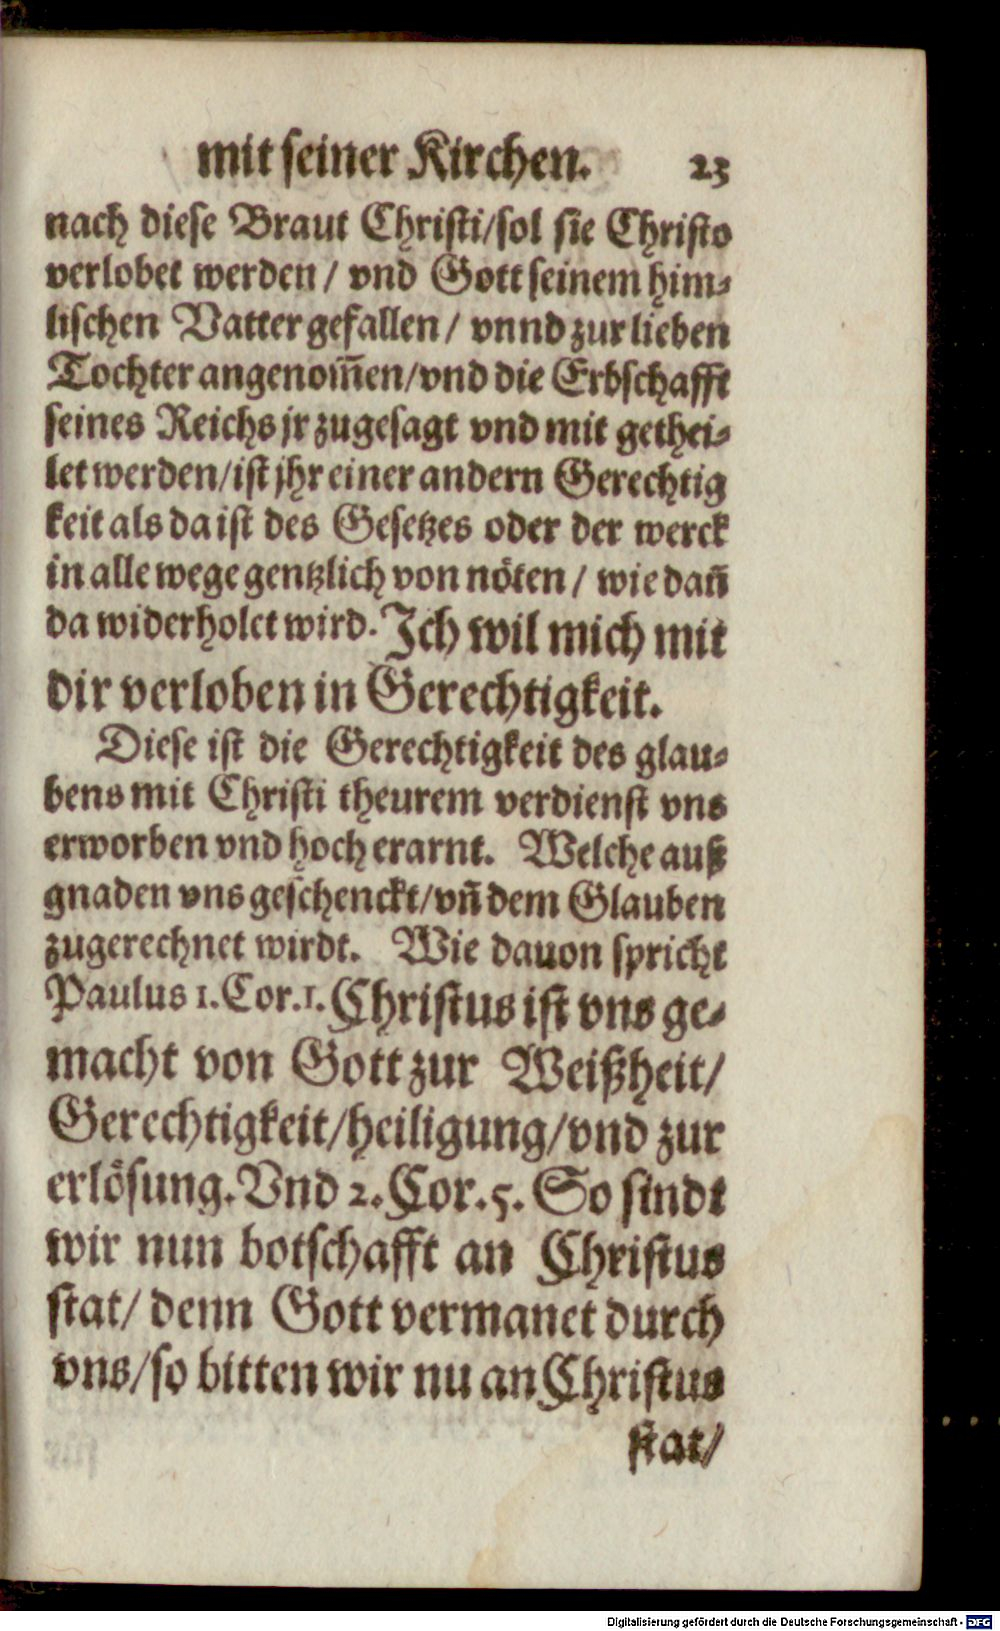 mit seiner Kirchen. 23
nach diese Braut Christi/sol sie Christo
verlobet werden / vnd Gott seinem him⸗
lischen Vatter gefallen / vnnd zur lieben
Tochter angenom̃en/vnd die Erbschafft
seines Reichs jr zugesagt vnd mit gethei⸗
let werden/ist jhr einer andern Gerechtig
keit als da ist des Gesetzes oder der werck
in alle wege gentzlich von nöten / wie dañ
da widerholet wird. Ich wil mich mit
dir verloben in Gerechtigkeit.
Diese ist die Gerechtigkeit des glau⸗
bens mit Christi theurem verdienst vns
erworben vnd hoch erarnt. Welche auß
gnaden vns geschenckt/vñ dem Glauben
zugerechnet wirdt. Wie dauon spricht
Paulus 1. Cor. 1. Christus ist vns ge⸗
macht von Gott zur Weißheit/
Gerechtigkeit/heiligung/vnd zur
erlösung. Vnd 2. Cor. 5. So sindt
wir nun botschafft an Christus
stat/ denn Gott vermanet durch
vns/so bitten wir nu an Christus
stat/
Digitalisierung gefördert durch die Deutsche Forschungsgemeinschaft - DFG